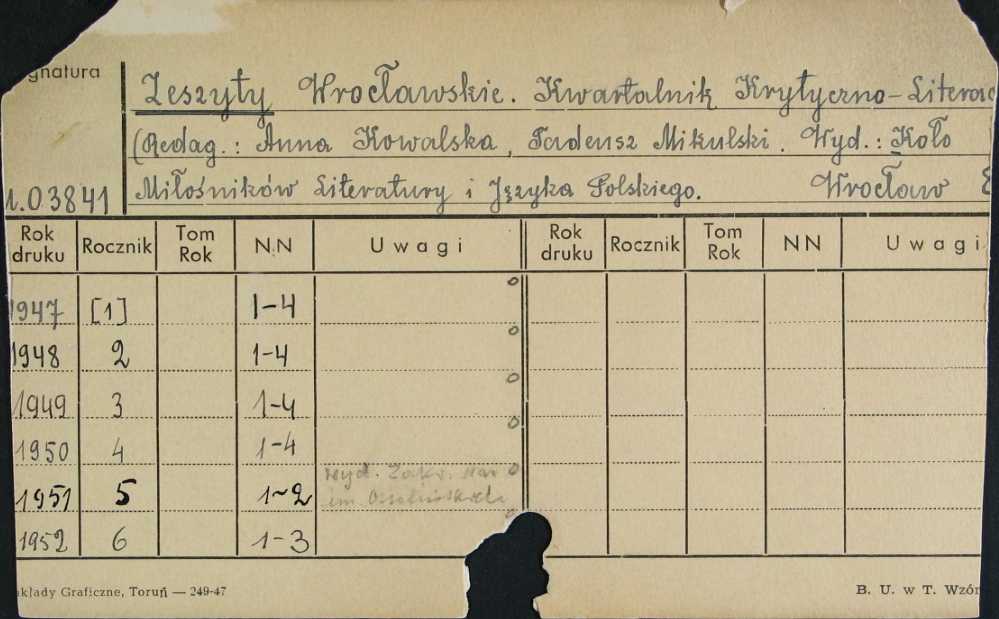 gnatura
Zeszyty Wrocławskie. Kwartalnik Krytyczno-Literac
(Redag.: Anna Kowalska, Tadeusz Mikulski. Wyd.: Koło
Miłośników Literatury i Języka Polskiego. Wrocław
1.03841
Rok druku Rocznik Tom Rok NN Uwagi Rok druku Rocznik Tom Rok NN Uwagi
1947 [1] 1-4
1948 2 1-4
1949 3 1-4
1950 4 1-4
1951 5 1-2 Wyd. Zakł. Nar
im. Ossolińskich
1952 6 1-3
kłady Graficzne, Toruń — 249-47 B. U. w T. Wzór